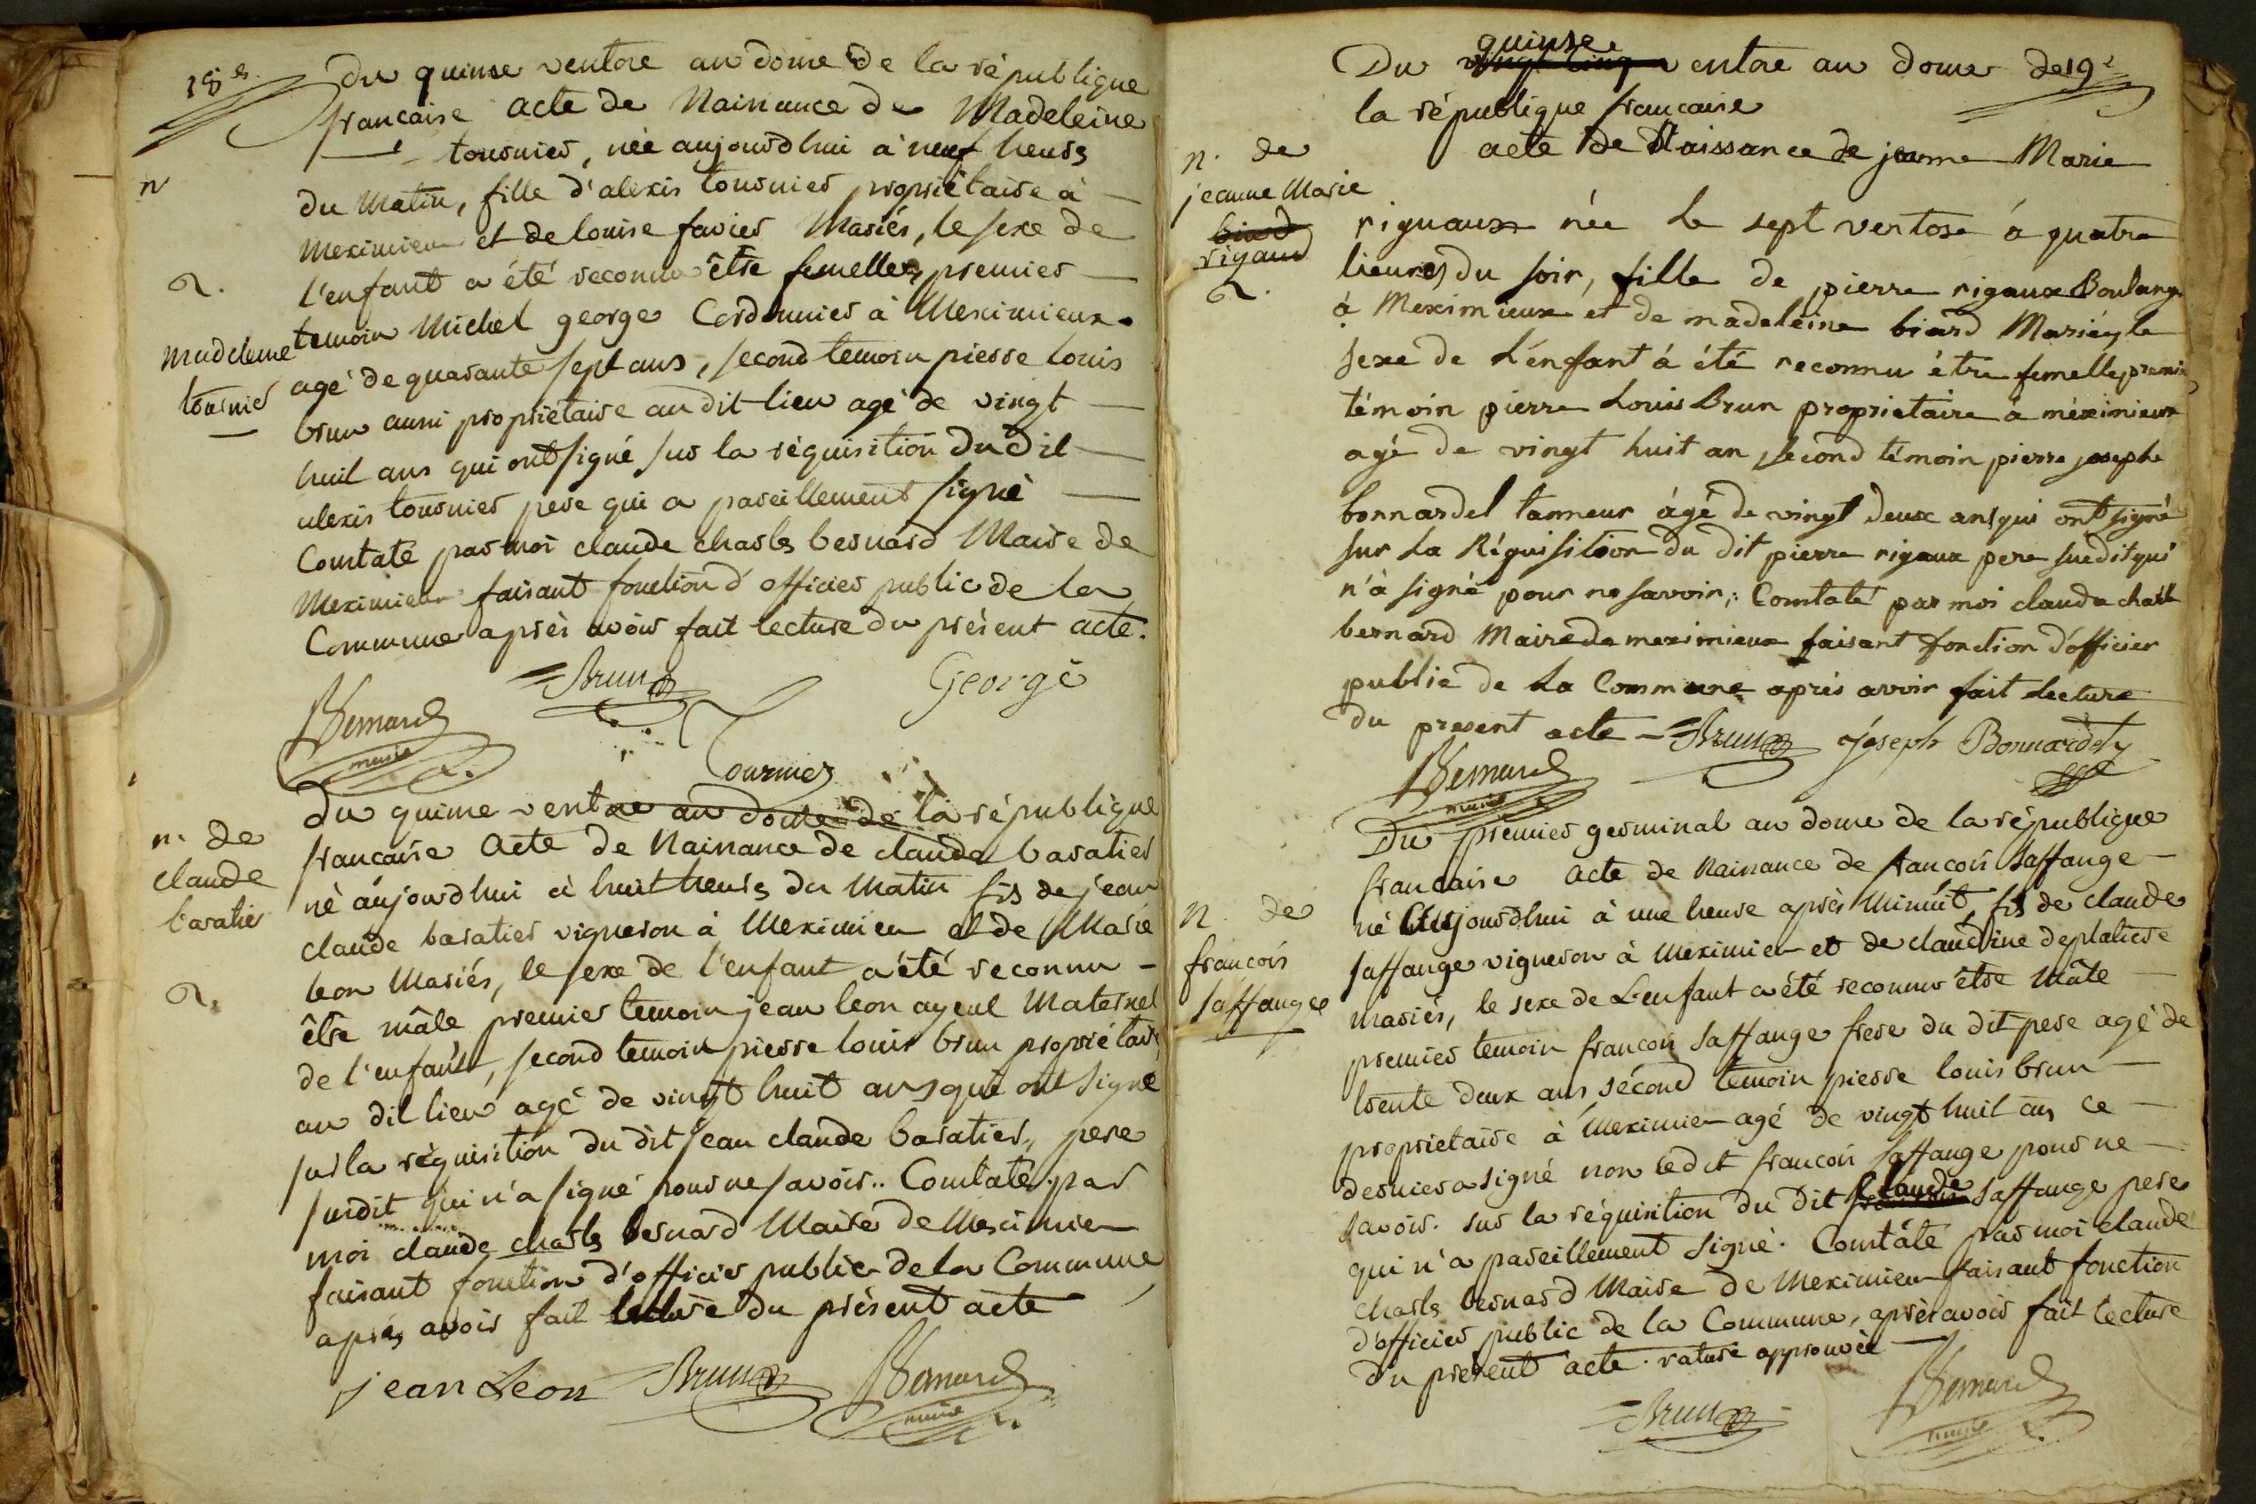 18e.
Du quinse ventose an douse de la république
francaise acte de Naissance de Madeleine
tournier, née aujourdhui à neuf heures
n
du Matin, fille d'alexis tournier propriétaire à
Meximieu et de louise favier Mariés, le sexe de
l'enfant a été reconnu être femelle, premier
2.
temoin Michel george Cordonnier à Meximieux.
Madeleine
tournier
agé de quarante sept ans, second temoin pierre louis
brun aussi propriétaire au dit lieu agé de vingt
huit ans qui ont signé sur la réquisition Du dit
alexis tournier pere qui a pareillement signé
Constaté par moi claude charles bernard Maire de
Meximieu faisant fonction d'officier public de la
Commune après avoir fait lecture du présent acte.
Brun
George
Bernard
maire
Tournier
Du quinse ventose an douse de la république
n. de
claude
baratier
2.
francaise Acte de Naissance de claude baratier
né aujourdhui à huit heures du Matin fis de jean
claude baratier vigneron à Meximieu et de Marie
leon Mariés, le sexe de l'enfant a été reconnu
être mâle premier temoin jean leon ayeul Maternel
de l'enfant, second temoin pierre louis brun propriétaire
au dit lieu agé de vingt huit ans qui ont signé
sur la réquisition du dit jean claude baratier, pere
susdit qui n'a signé pour ne savoir.. Constaté par
moi claude charles bernard Maire de Meximieu
faisant fonction d'officier public de la Commune
après avoir fait lecture du présent acte
jean Leon Brun Bernard
maire
19e
quinse
Du vingt cinq ventose an douse de
la république francaise
acte de Naissance de jeanne Marie
n. de
jeanne Marie
biard
rigaud
2.
riguaux née le sept ventose à quatre
heures du soir, fille de pierre rigaux Boulanger
à Meximieux et de madeleine biard Mariés le
sexe de L'enfant à été reconnu être femelle premier
témoin pierre Louis Brun propriétaire à méximieux
agé de vingt huit an second témoin pierre joseph
bonnardel tanneur âgé de vingt deux ans qui ont signé
sur la Réquisition du dit pierre rigaux pere susdit qui
n'à signé pour ne savoir,. Constaté par moi claude charles
bernard Maire de meximieux faisant fonction d'officier
public de La Commune après avoir fait Lecture
du present acte Brun joseph Bonnardel
Bernard
maire
Du premier germinal an douse de la république
francaise Acte de Naissance de francois saffange
n. de
francois
saffange
né Aujourdhui à une heure après Minuit, fis de claude
saffange vigneron à Meximieu et de claudine deplatiere
mariés, le sexe de L'enfant a été reconnu être mâle
premier temoin francois saffange frere du dit pere agé de
trente deux ans sécond temoin pierre louis brun
propriétaire à Meximieu agé de vingt huit ans ce
dernier a signé non ledit francois saffange pour ne
savoir. sur la réquisition du dit claude saffange pere
qui n'a pareillement signé. Constaté par moi claude
charles bernard Maire de Meximieu faisant fonction
d'officier public de la Commune, après avoir fait lecture
du présent acte. rature approuvée
Brun
Bernard
maire